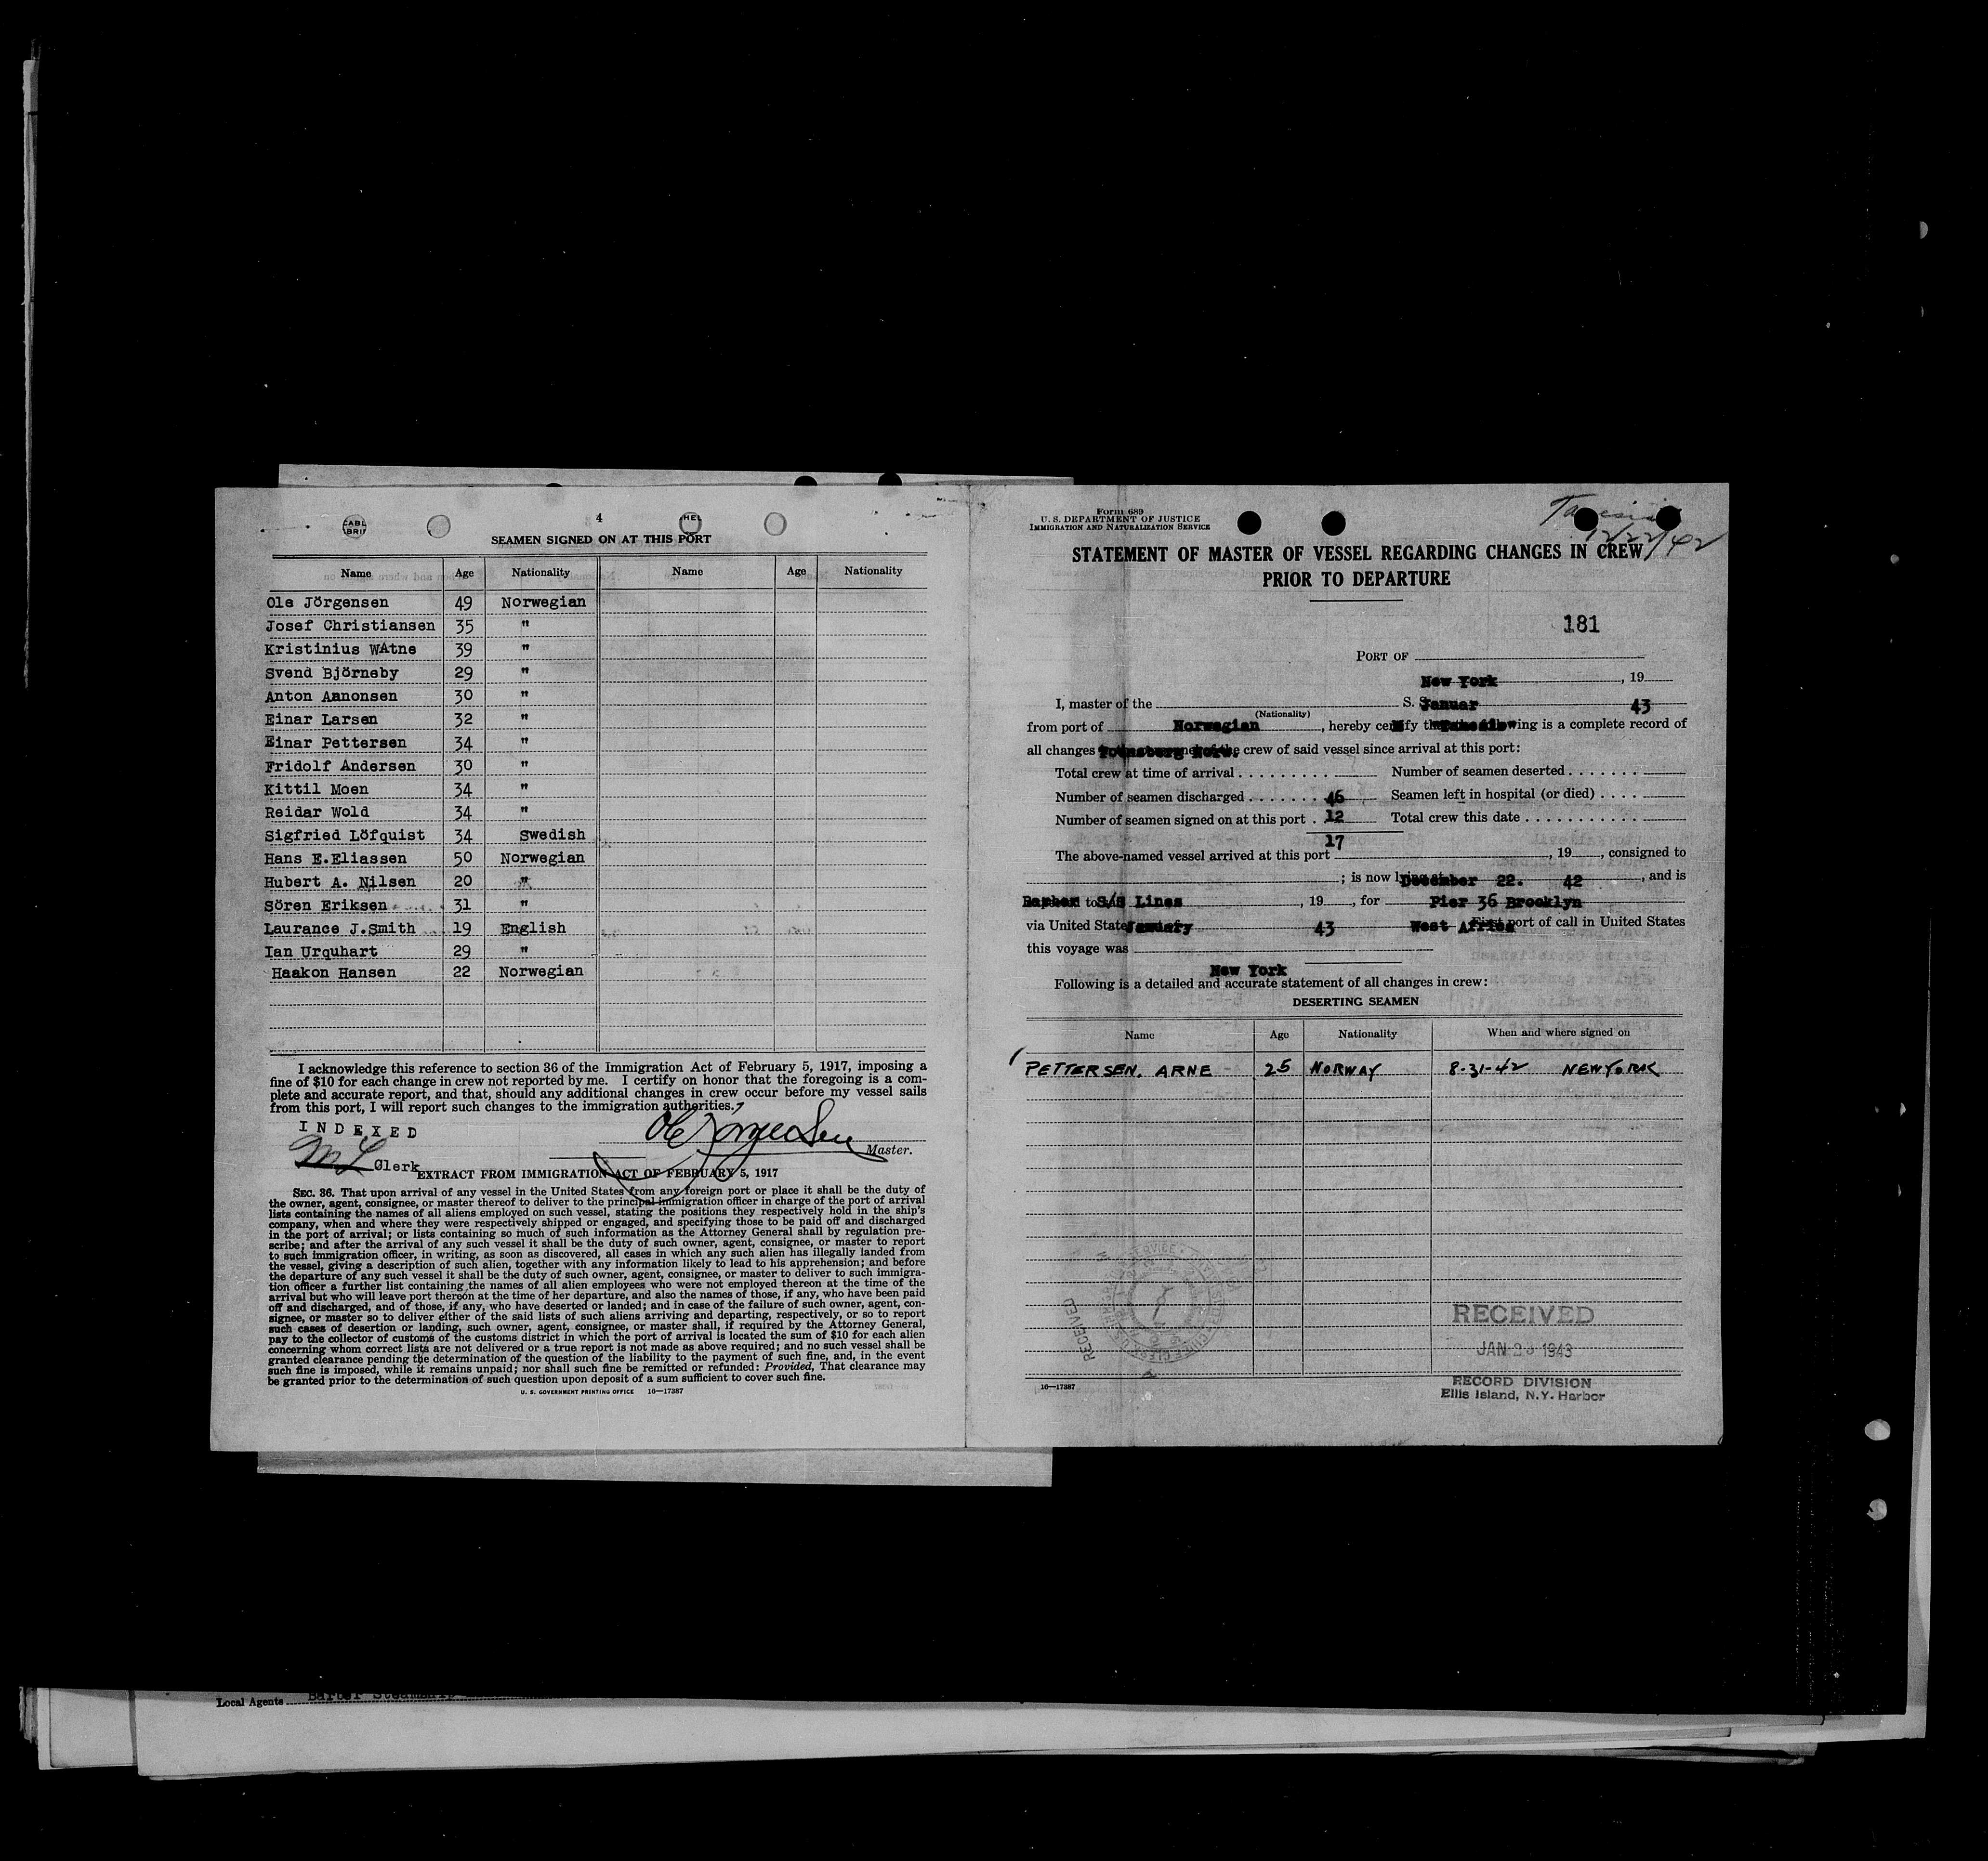 4
SEAMEN SIGNED ON AT THIS PORT
Name Age Nationality Name Age Nationality
Ole Jörgensen 49 Norwegian
Josef Christiansen 35 "
Kristinius WAtne 39 "
Svend Björneby 29 "
Anton Aanonsen 30 "
Einar Larsen 32 "
Einar Pettersen 34 "
Fridolf Andersen 30 "
Kittil Moen 34 "
Reidar Wold 34 "
Sigfried Löfquist 34 Swedish
Hans E.Eliassen 50 Norwegian
Hubert A. Nilsen 20 "
Sören Eriksen 31 "
Laurance J.Smith 19 English
Ian Urquhart 29 "
Haakon Hansen 22 Norwegian
I acknowledge this reference to section 36 of the Immigration Act of February 5, 1917, imposing a
fine of $10 for each change in crew not reported by me. I certify on honor that the foregoing is a com-
plete and accurate report, and that, should any additional changes in crew occur before my vessel sails
from this port, I will report such changes to the immigration authorities.
INDEXED
Master.
Clerk
EXTRACT FROM IMMIGRATION ACT OF FEBRUARY 5, 1917
SEC. 36. That upon arrival of any vessel in the United States from any foreign port or place it shall be the duty of
the owner, agent, consignee, or master thereof to deliver to the principal immigration officer in charge of the port of arrival
lists containing the names of all aliens employed on such vessel, stating the positions they respectively hold in the ship's
company, when and where they were respectively shipped or engaged, and specifying those to be paid off and discharged
in the port of arrival; or lists containing so much of such information as the Attorney General shall by regulation pre-
scribe; and after the arrival of any such vessel it shall be the duty of such owner, agent, consignee, or master to report
to such immigration officer, in writing, as soon as discovered, all cases in which any such alien has illegally landed from
the vessel, giving a description of such alien, together with any information likely to lead to his apprehension; and before
the departure of any such vessel it shall be the duty of such owner, agent, consignee, or master to deliver to such immigra-
tion officer a further list containing the names of all alien employees who were not employed thereon at the time of the
arrival but who will leave port thereon at the time of her departure, and also the names of those, if any, who have been paid
off and discharged, and of those, if any, who have deserted or landed; and in case of the failure of such owner, agent, con-
signee, or master so to deliver either of the said lists of such aliens arriving and departing, respectively, or so to report
such cases of desertion or landing, such owner, agent, consignee, or master shall, if required by the Attorney General,
pay to the collector of customs of the customs district in which the port of arrival is located the sum of $10 for each alien
concerning whom correct lists are not delivered or a true report is not made as above required; and no such vessel shall be
granted clearance pending the determination of the question of the liability to the payment of such fine, and, in the event
such fine is imposed, while it remains unpaid; nor shall such fine be remitted or refunded: Provided, That clearance may
be granted prior to the determination of such question upon deposit of a sum sufficient to cover such fine.
U. S. GOVERNMENT PRINTING OFFICE 16—17387
Form 689
U. S. DEPARTMENT OF JUSTICE
IMMIGRATION AND NATURALIZATION SERVICE
12/22/42
STATEMENT OF MASTER OF VESSEL REGARDING CHANGES IN CREW
PRIOR TO DEPARTURE
181
PORT OF
New York , 19
I, master of the S. S. Januar 43
(Nationality)
from port of Norwegian , hereby certify the following is a complete record of
all changes Norw. the crew of said vessel since arrival at this port:
Total crew at time of arrival Number of seamen deserted
Number of seamen discharged 46 Seamen left in hospital (or died)
Number of seamen signed on at this port 12 Total crew this date
17
The above-named vessel arrived at this port , 19 , consigned to
; is now lying December 22. 42 , and is
Barber to S/S Lines , 19 , for Pier 36 Brooklyn
via United States January 43 West Africa First port of call in United States
this voyage was
New York
Following is a detailed and accurate statement of all changes in crew:
DESERTING SEAMEN
Name Age Nationality When and where signed on
PETTERSEN, ARNE 25 NORWAY 8-31-42 NEW YORK
RECEIVED
RECEIVED
JAN 1943
RECORD DIVISION
Ellis Island, N.Y. Harbor
16—17387
Local Agents